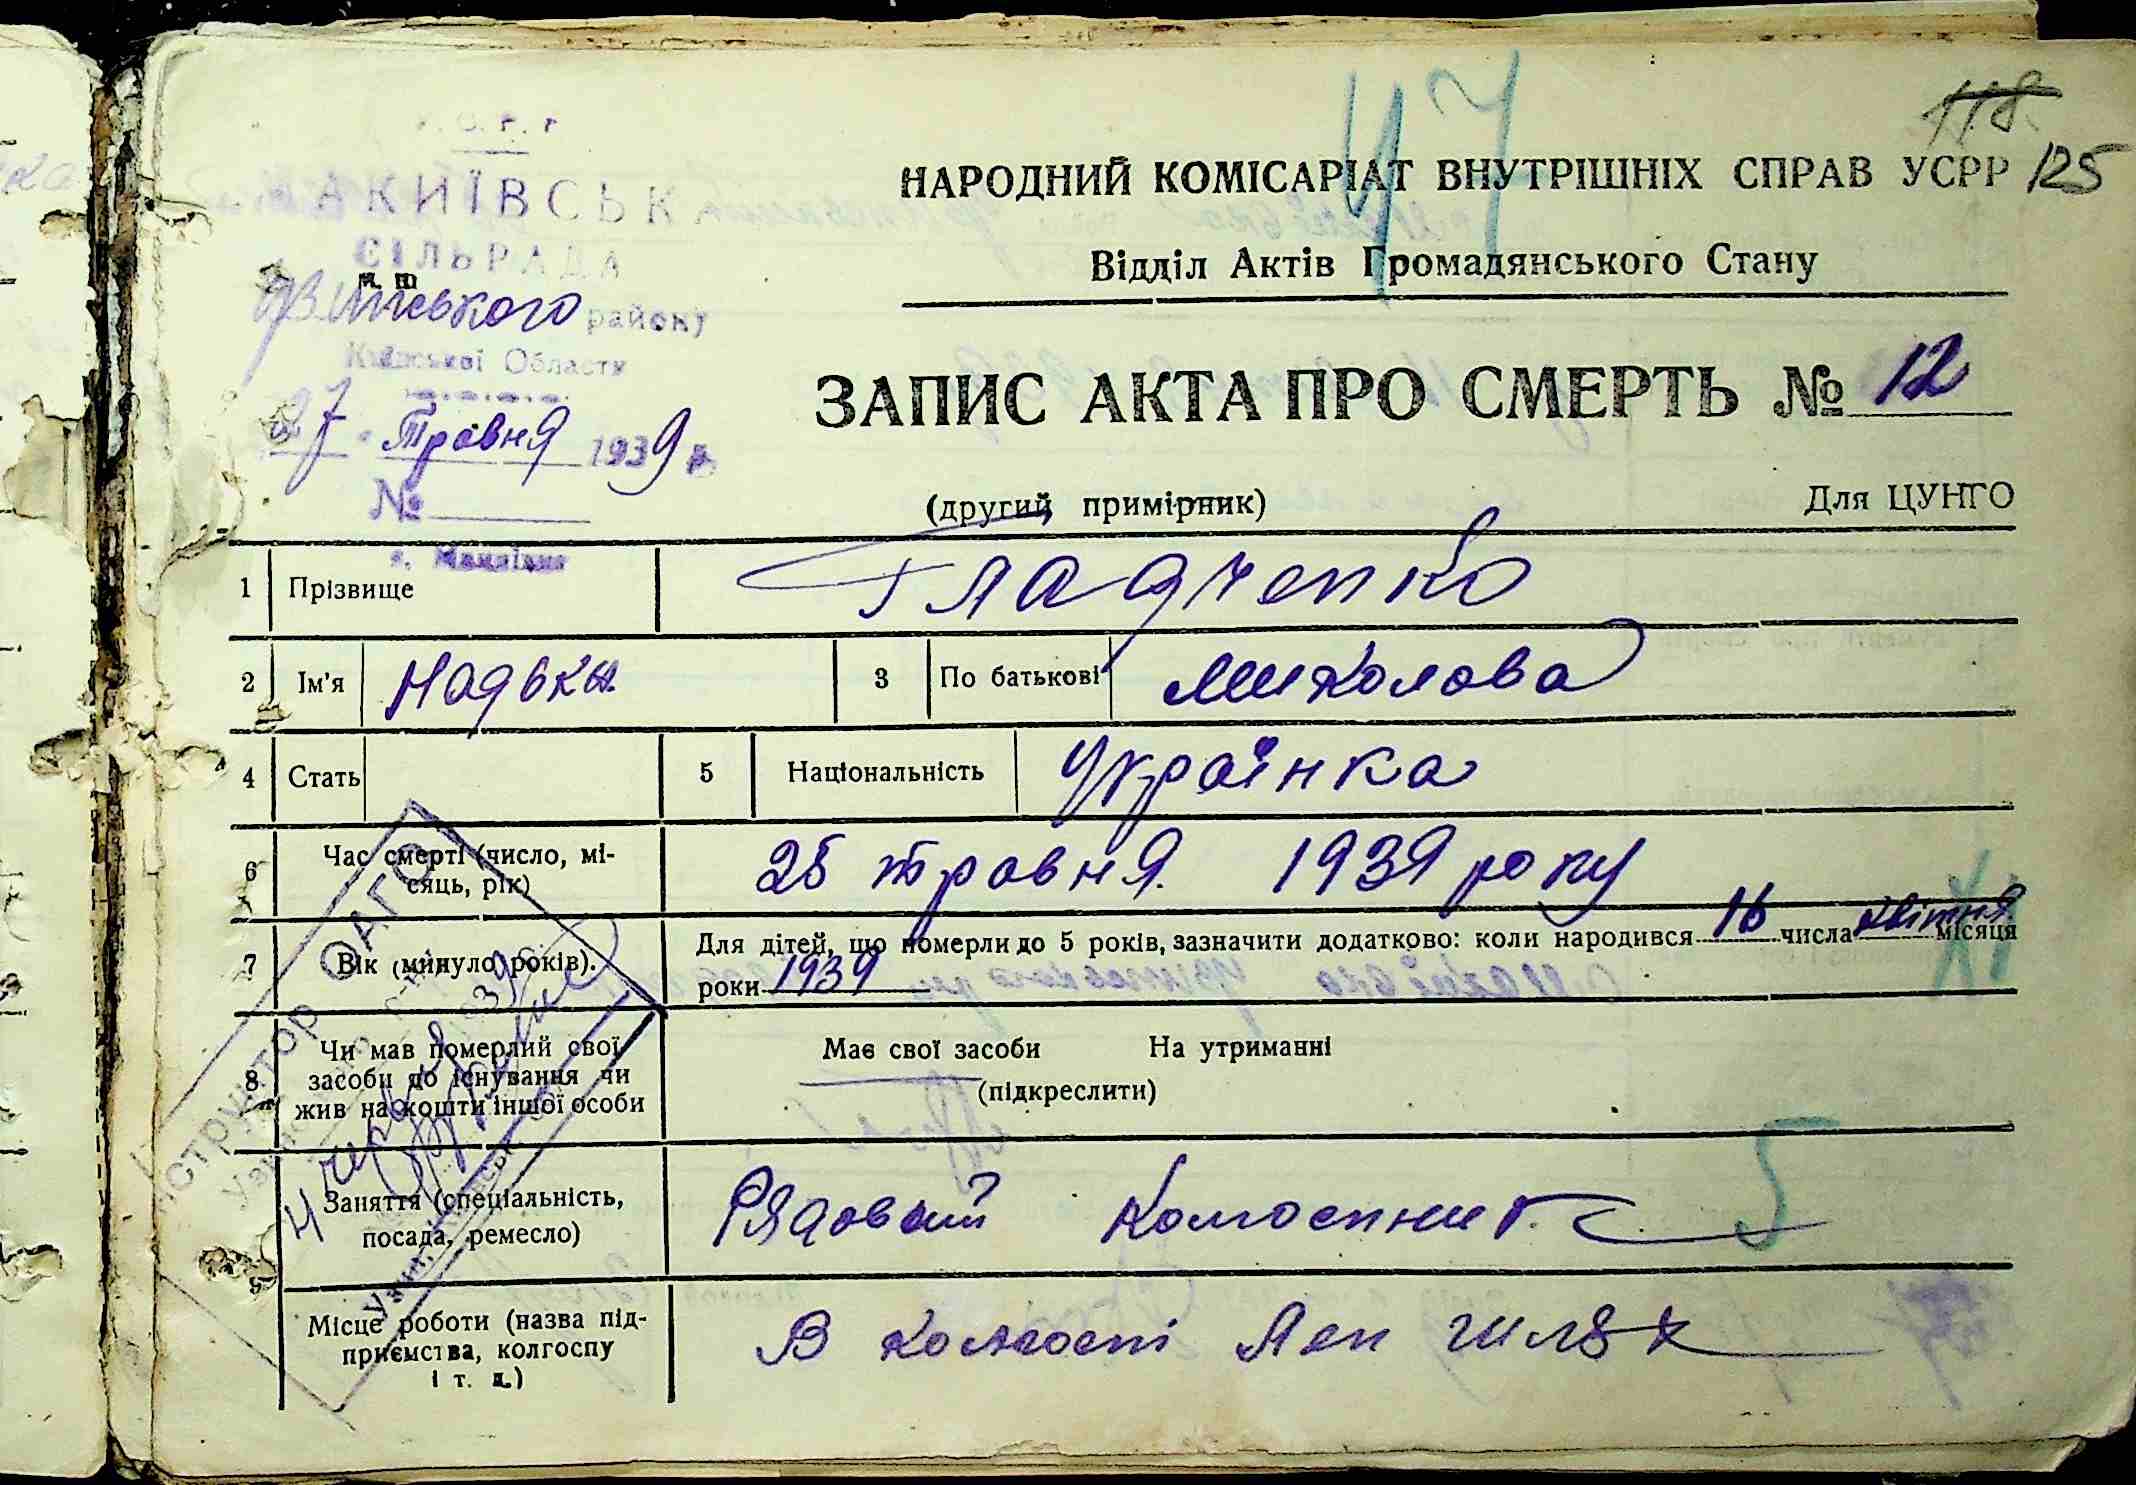 47
118
125
НАРОДНИЙ КОМІСАРІАТ ВНУТРІШНІХ СПРАВ УСРР
Відділ Актів Громадянського Стану
АКИЇВСЬКА
СІЛЬРАДА
району
Київської Области
27 Травня 1939 р.
№
ЗАПИС АКТА ПРО СМЕРТЬ № 12
(другий примірник)
Для ЦУНГО
1 Прізвище Гладченко
2 Ім'я Надька 3 По батькові Миколова
4 Стать 5 Національність Українка
6 Час смерті (число, мі-
сяць, рік) 25 травня 1939 року
7 Вік (минуло років). Для дітей, що померли до 5 років, зазначити додатково: коли народився 16 числа квітня місяця
роки 1939
8 Чи мав померлий свої
засоби до існування чи
жив на кошти іншої особи
Має свої засоби На утриманні
(підкреслити)
5
9 Заняття (спеціальність,
посада, ремесло) Рядовий Колгоспник
Місце роботи (назва під-
приємства, колгоспу
і т. д.)
В колгоспі Лен шлях